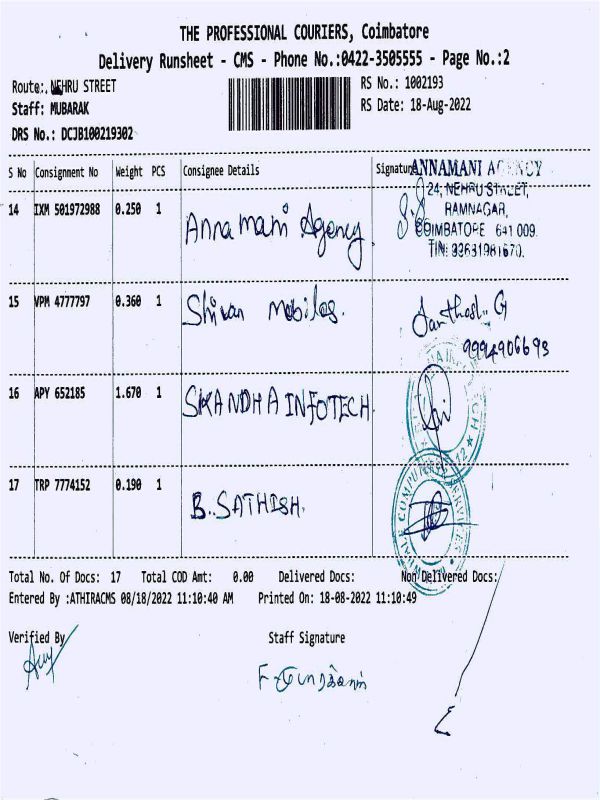 THE PROFESSIONAL COURIERS, Coimbatore
Delivery Runsheet - CMS - Phone No.:0422-3505555 - Page No.:2
Route: NEHRU STREET
RS No.: 1002193
Staff: MUBARAK
RS Date: 18-Aug-2022
DRS No.: DCJB100219302
S No Consignment No Weight PCS Consignee Details Signature
ANNAMANI AGENCY
24, NEHRU STREET,
RAMNAGAR,
COIMBATORE 641 009.
TIN: 33631981670.
14 IXM 501972988 0.250 1 Annamani Agency
15 VPM 4777797 0.360 1 Shivan Mobiles. Santhosh. G
9994906693
16 APY 652185 1.670 1 SKANDHA INFOTECH.
17 TRP 7774152 0.190 1 B. SATHISH.
Total No. Of Docs: 17 Total COD Amt: 0.00 Delivered Docs: Non Delivered Docs:
Entered By :ATHIRACMS 08/18/2022 11:10:40 AM Printed On: 18-08-2022 11:10:49
Verified By Staff Signature